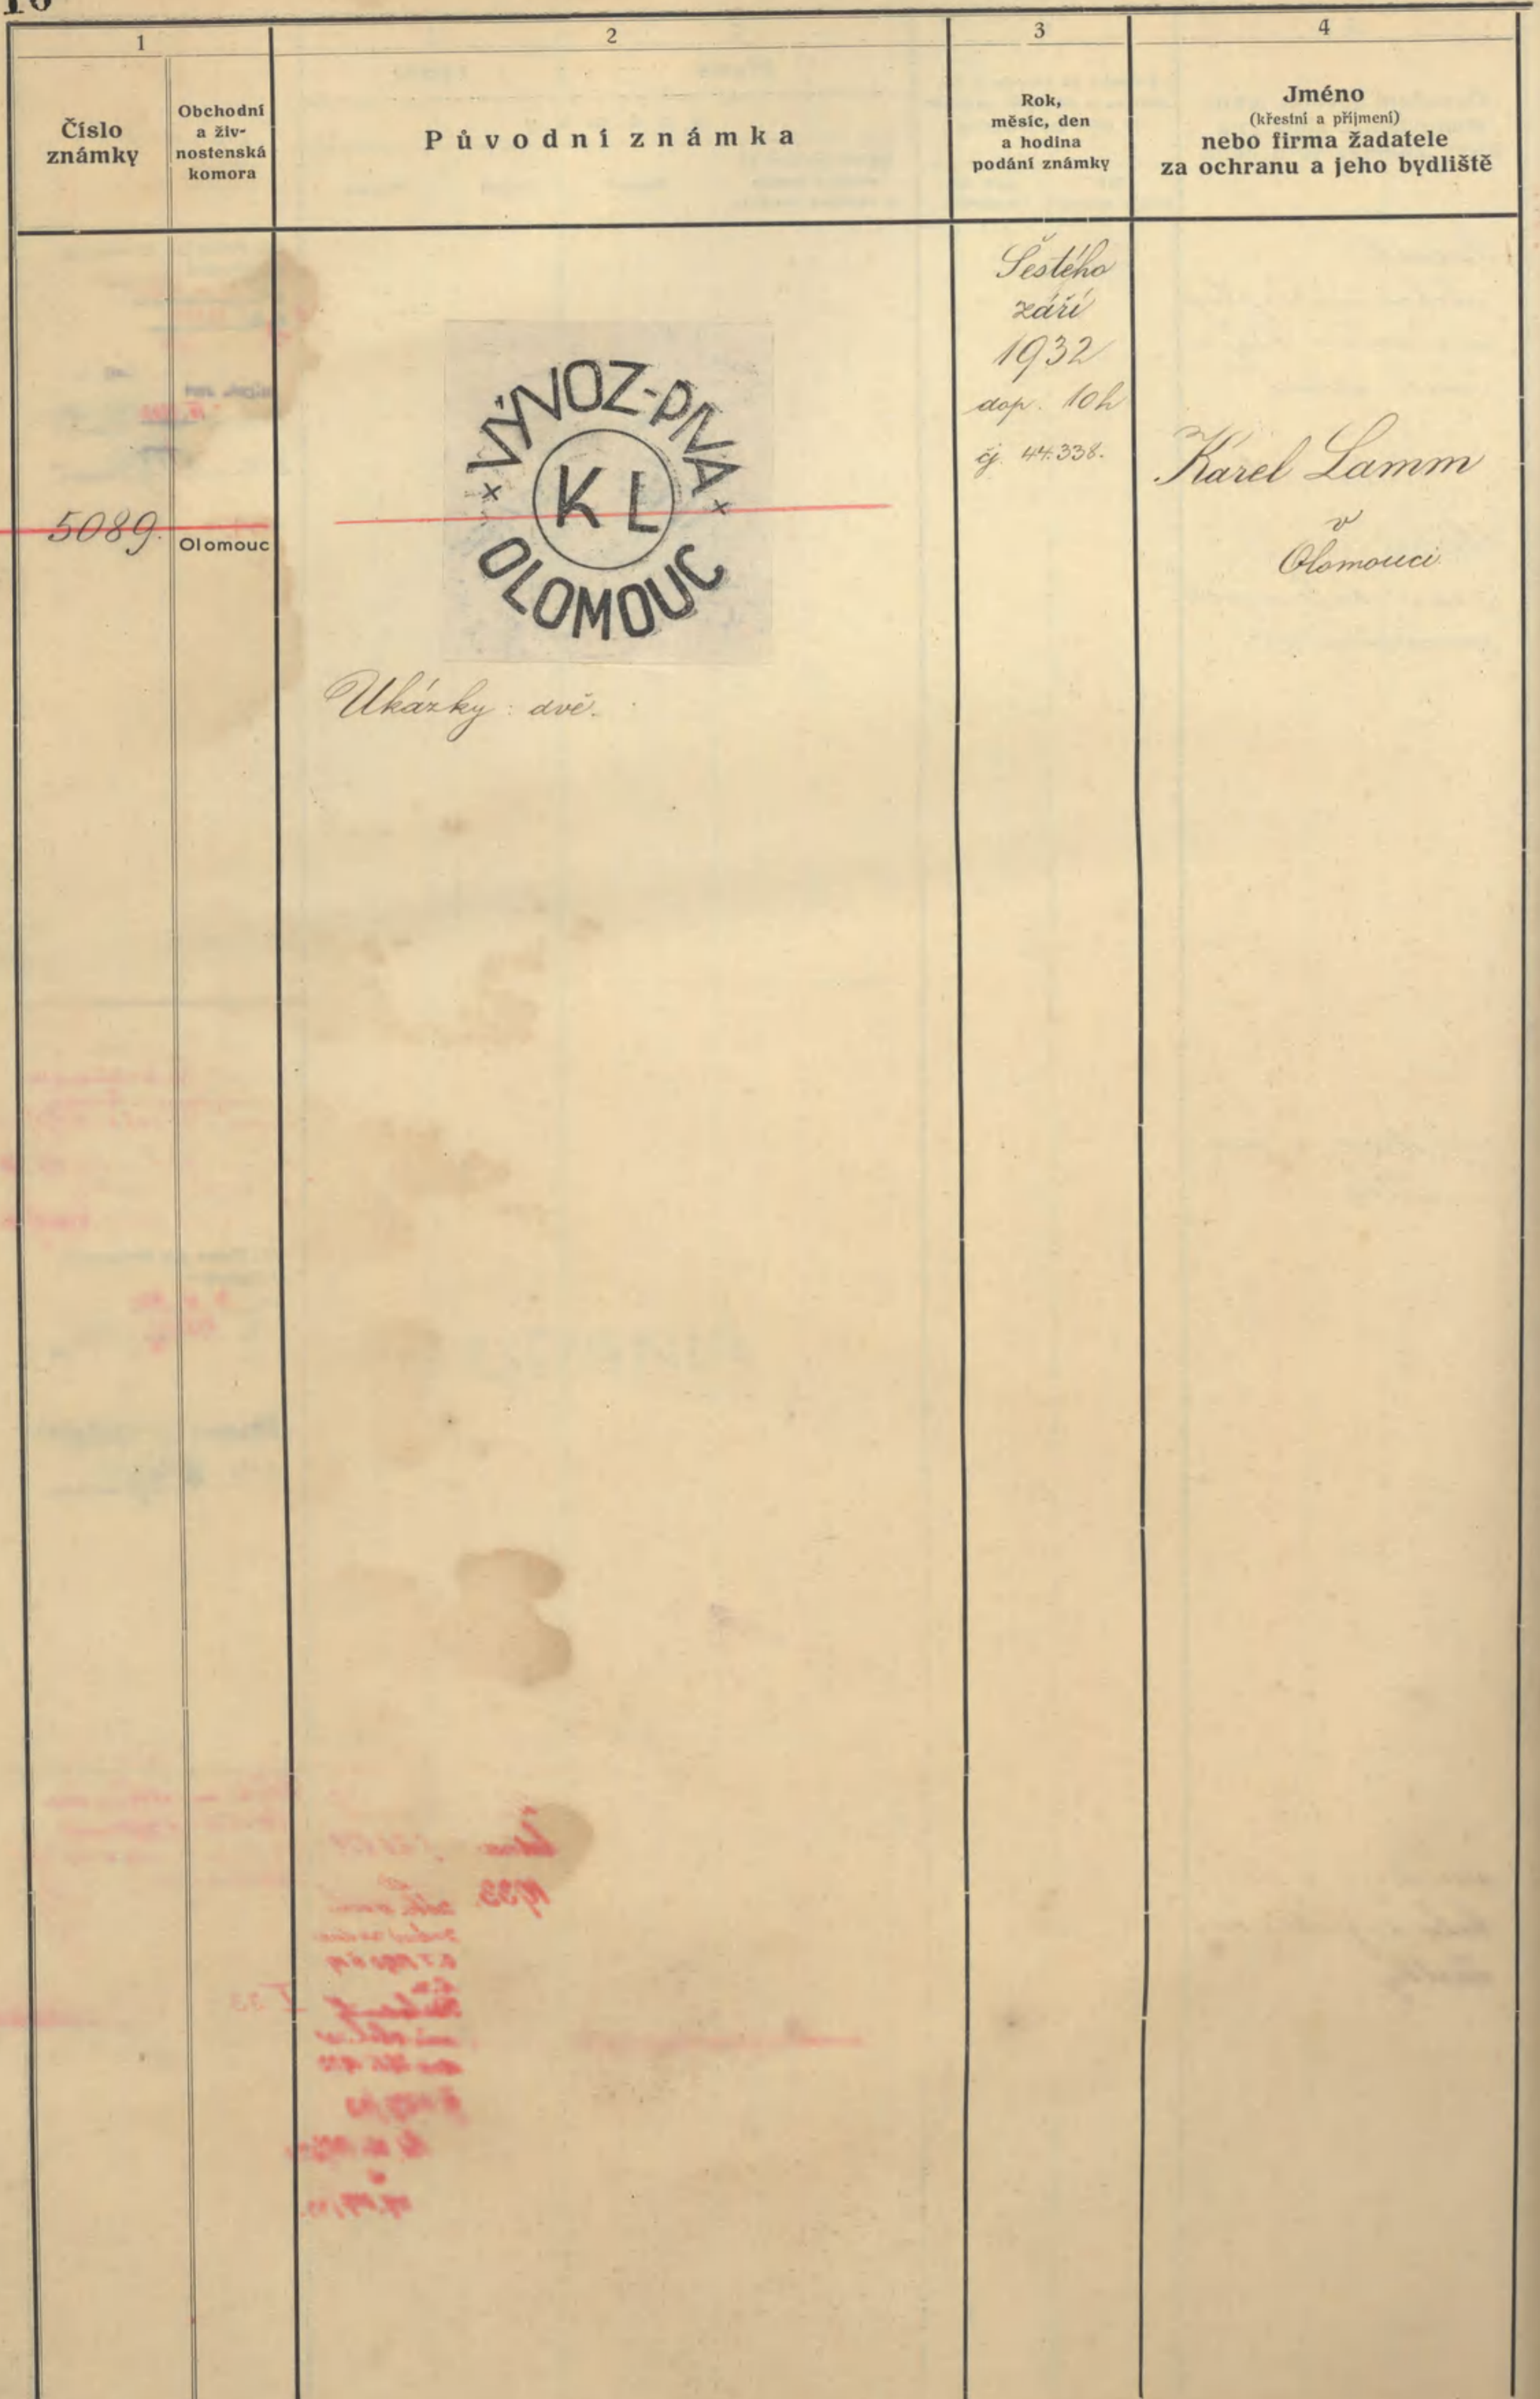 1
Číslo
známky
Obchodní
a živ-
nostenská
komora
2
Původní známka
3
Rok,
měsíc, den
a hodina
podání známky
4
Jméno
(křestní a příjmení)
nebo firma žadatele
za ochranu a jeho bydliště
5089.
Olomouc
× VÝVOZ-PIVA ×
KL
OLOMOUC
Ukázky: dvě.
Šestého
září
1932
dop. 10h
čj. 44.338.
Karel Lamm
v
Olomouci